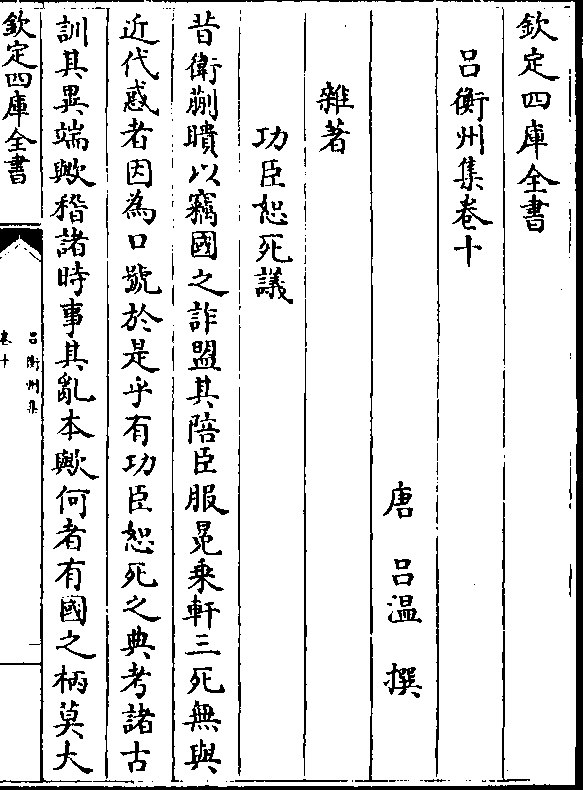 欽定四庫全書
呂衡州集卷十
唐 呂溫 撰
雜著
功臣恕死議
昔衛蒯聵以竊國之詐盟其陪臣服冕乗軒三死無與
近代惑者因為口號於是乎有功臣恕死之典考諸古
訓其異端歟稽諸時事其亂本歟何者有國之柄莫大
欽定四庫全書
呂衡州集
卷十
一